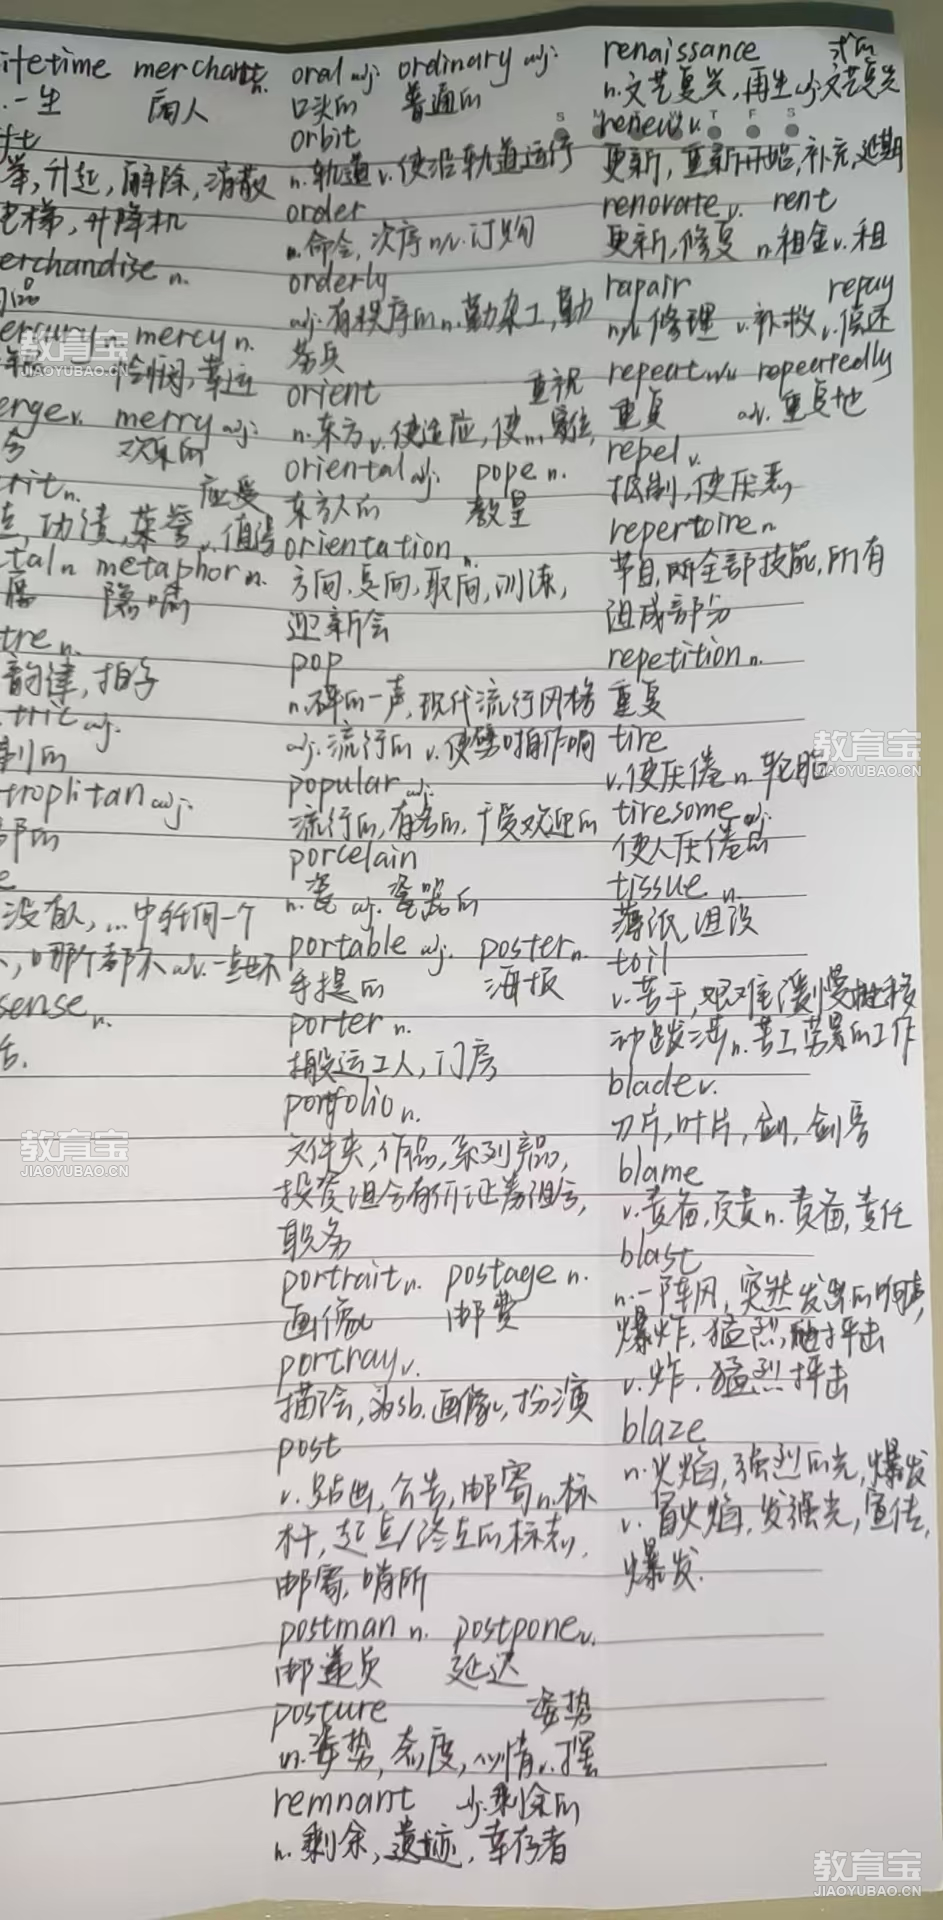 ifetime merchant n.
.一生 商人
举,升起,解除,消散
电梯,升降机
erchandise n.
ercury n. mercy n.
怜悯,幸运
erge v. merry adj.
欢乐的
erit n. 应受
功绩,荣誉 v.值得
tal n metaphor n.
隐喻
tre n.
韵律,拍子
tric adj.
制的
troplitan adj.
部的
e
没有人,...中任何一个
哪个都不 adv.一点也不
sense n.
oral adj. ordinary adj.
口头的 普通的
orbit
n.轨道 v.使沿轨道运行
order
n.命令,次序 n/v.订购
orderly
adj.有秩序的 n.勤杂工,勤
务兵
orient 重视
n.东方 v.使适应,使...
oriental adj. pope n.
东方人的 教皇
orientation n.
方向,定向,取向,训练,
迎新会
pop
n.砰的一声,现代流行风格
adj.流行的 v.使
popular adj.
流行的,有名的,干受欢迎的
porcelain
n.瓷 adj.瓷器的
portable adj. poster n.
手提的 海报
porter n.
搬运工人,门房
portfolio n.
文件夹,作品,系列产品,
投资组合,有价证券组合,
职务
portrait n. postage n.
画像 邮费
portray v.
描绘,为sb.画像,扮演
post
v.贴出,公告,邮寄 n.标
杆,起点/终点的标志,
邮寄,哨所
postman n. postpone v.
邮递员 延迟
posture 姿势
n.姿势,态度,心情 v.摆
remnant adj.剩余的
n.剩余,遗迹,幸存者
renaissance 式的
n.文艺复兴,再生 adj.文艺复兴
S M T W T F S
renew v.
更新,重新开始,补充,延期
renovate v. rent
更新,修复 n.租金 v.租
rapair repay
n/v.修理 v.补救 v.偿还
repeat n/v repeartedly
重复 adv.重复地
repel v.
抵制,使厌恶
repertoire n
节目,所全部技能,所有
组成部分
repetition n.
重复
tire
v.使厌倦 n.轮胎
tiresome adj.
使人厌倦的
tissue n.
薄纸,组织
toil
v.苦干,艰难缓慢地移
动跋涉 n.苦工劳累的工作
blade v.
刀片,叶片,剑,剑客
blame
v.责备,负责 n.责备,责任
blast
n.一阵风,突然发出的响声,
爆炸,猛烈抨击
v.炸,猛烈抨击
blaze
n.火焰,强烈的光,爆发
v.冒火焰,发强光,宣传,
爆发.
教育宝
JIAOYUBAO.CN
教育宝
JIAOYUBAO.CN
教育宝
JIAOYUBAO.CN
教育宝
JIAOYUBAO.CN